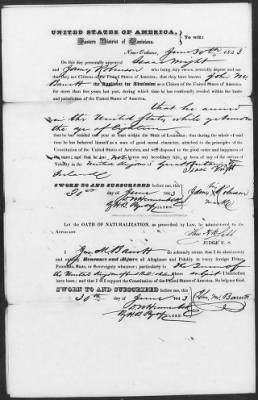 UNITED STATES OF AMERICA,
Eastern District of Louisiana, To wit:
New Orleans, June 30th 1843
On this day personally appeared Isaac Wright
and James Robinson who being duly sworn, severally depose and say
that they are Citizens of the United States of America, that they have known John Mc
Barrett the Applicant for Admission as a Citizen of the United States of America,
for more than five years last past, during which time he has continually resided within the limits
and jurisdiction of the United States of America,
that he arrived
in the United States while yet under
the age of Eighteen
that he has resided one year in State of Louisiana; that during the whole of said
time he has behaved himself as a man of good moral character, attached to the principles of the
Constitution of the United States of America, and well disposed to the good order and happiness of
the same; and that he has not any hereditary title, or been of any of the orders of
Nobility in the United Kingdom of Great Britain and
Ireland Isaac Wright
SWORN TO AND SUBSCRIBED before me, this
30th day of June 1843
CLERK.
Let the OATH OF NATURALIZATION, as prescribed by Law, be administered to the
Applicant.
JUDGE U. S.
I, Jno. M. Barrett do solemnly swear that I do absolutely and
entirely Renounce and Abjure all Allegiance and Fidelity to every foreign Prince,
Potentate, State, or Sovereignty whatever; particularly to the Queen of
the United Kingdom whose subject I heretofore
have been; and that I will support the Constitution of the United States of America. So help me God.
SWORN TO AND SUBSCRIBED before me, this
30th day of June 1843 Jno. M. Barrett
CLERK.